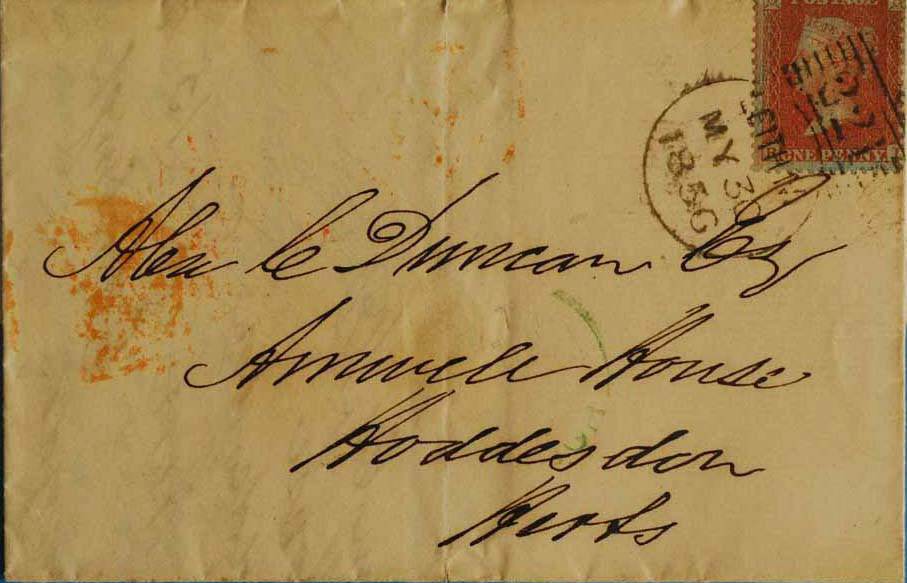 POSTAGE
ONE PENNY
MY 30
1856
Alex C Duncan Esq
Amwell House
Hoddesdon
Herts